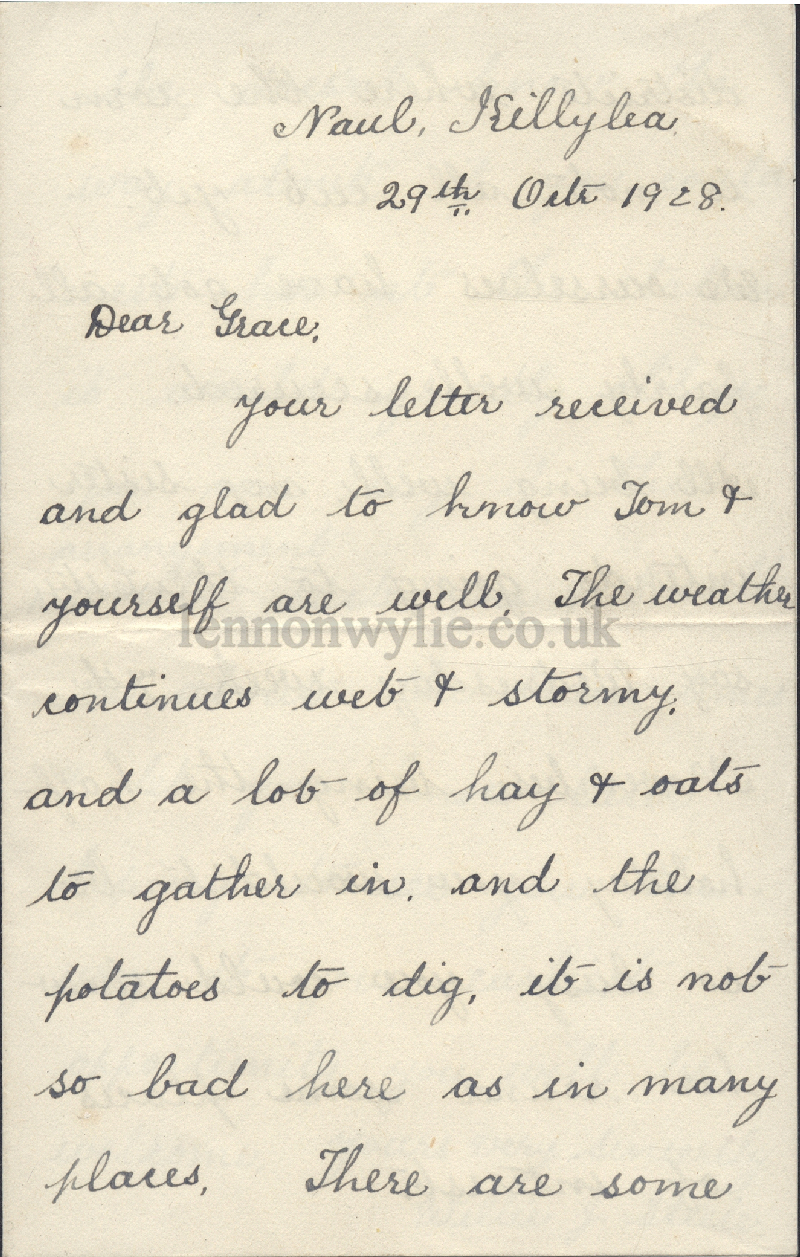 Naul, Killylea
29th Oct 1928.
Dear Grace,
your letter received
and glad to know Tom &
yourself are well. The weather
lennonwylie.co.uk
continues wet & stormy,
and a lot of hay & oats
to gather in. and the
potatoes to dig, it is not
so bad here as in many
places. There are some